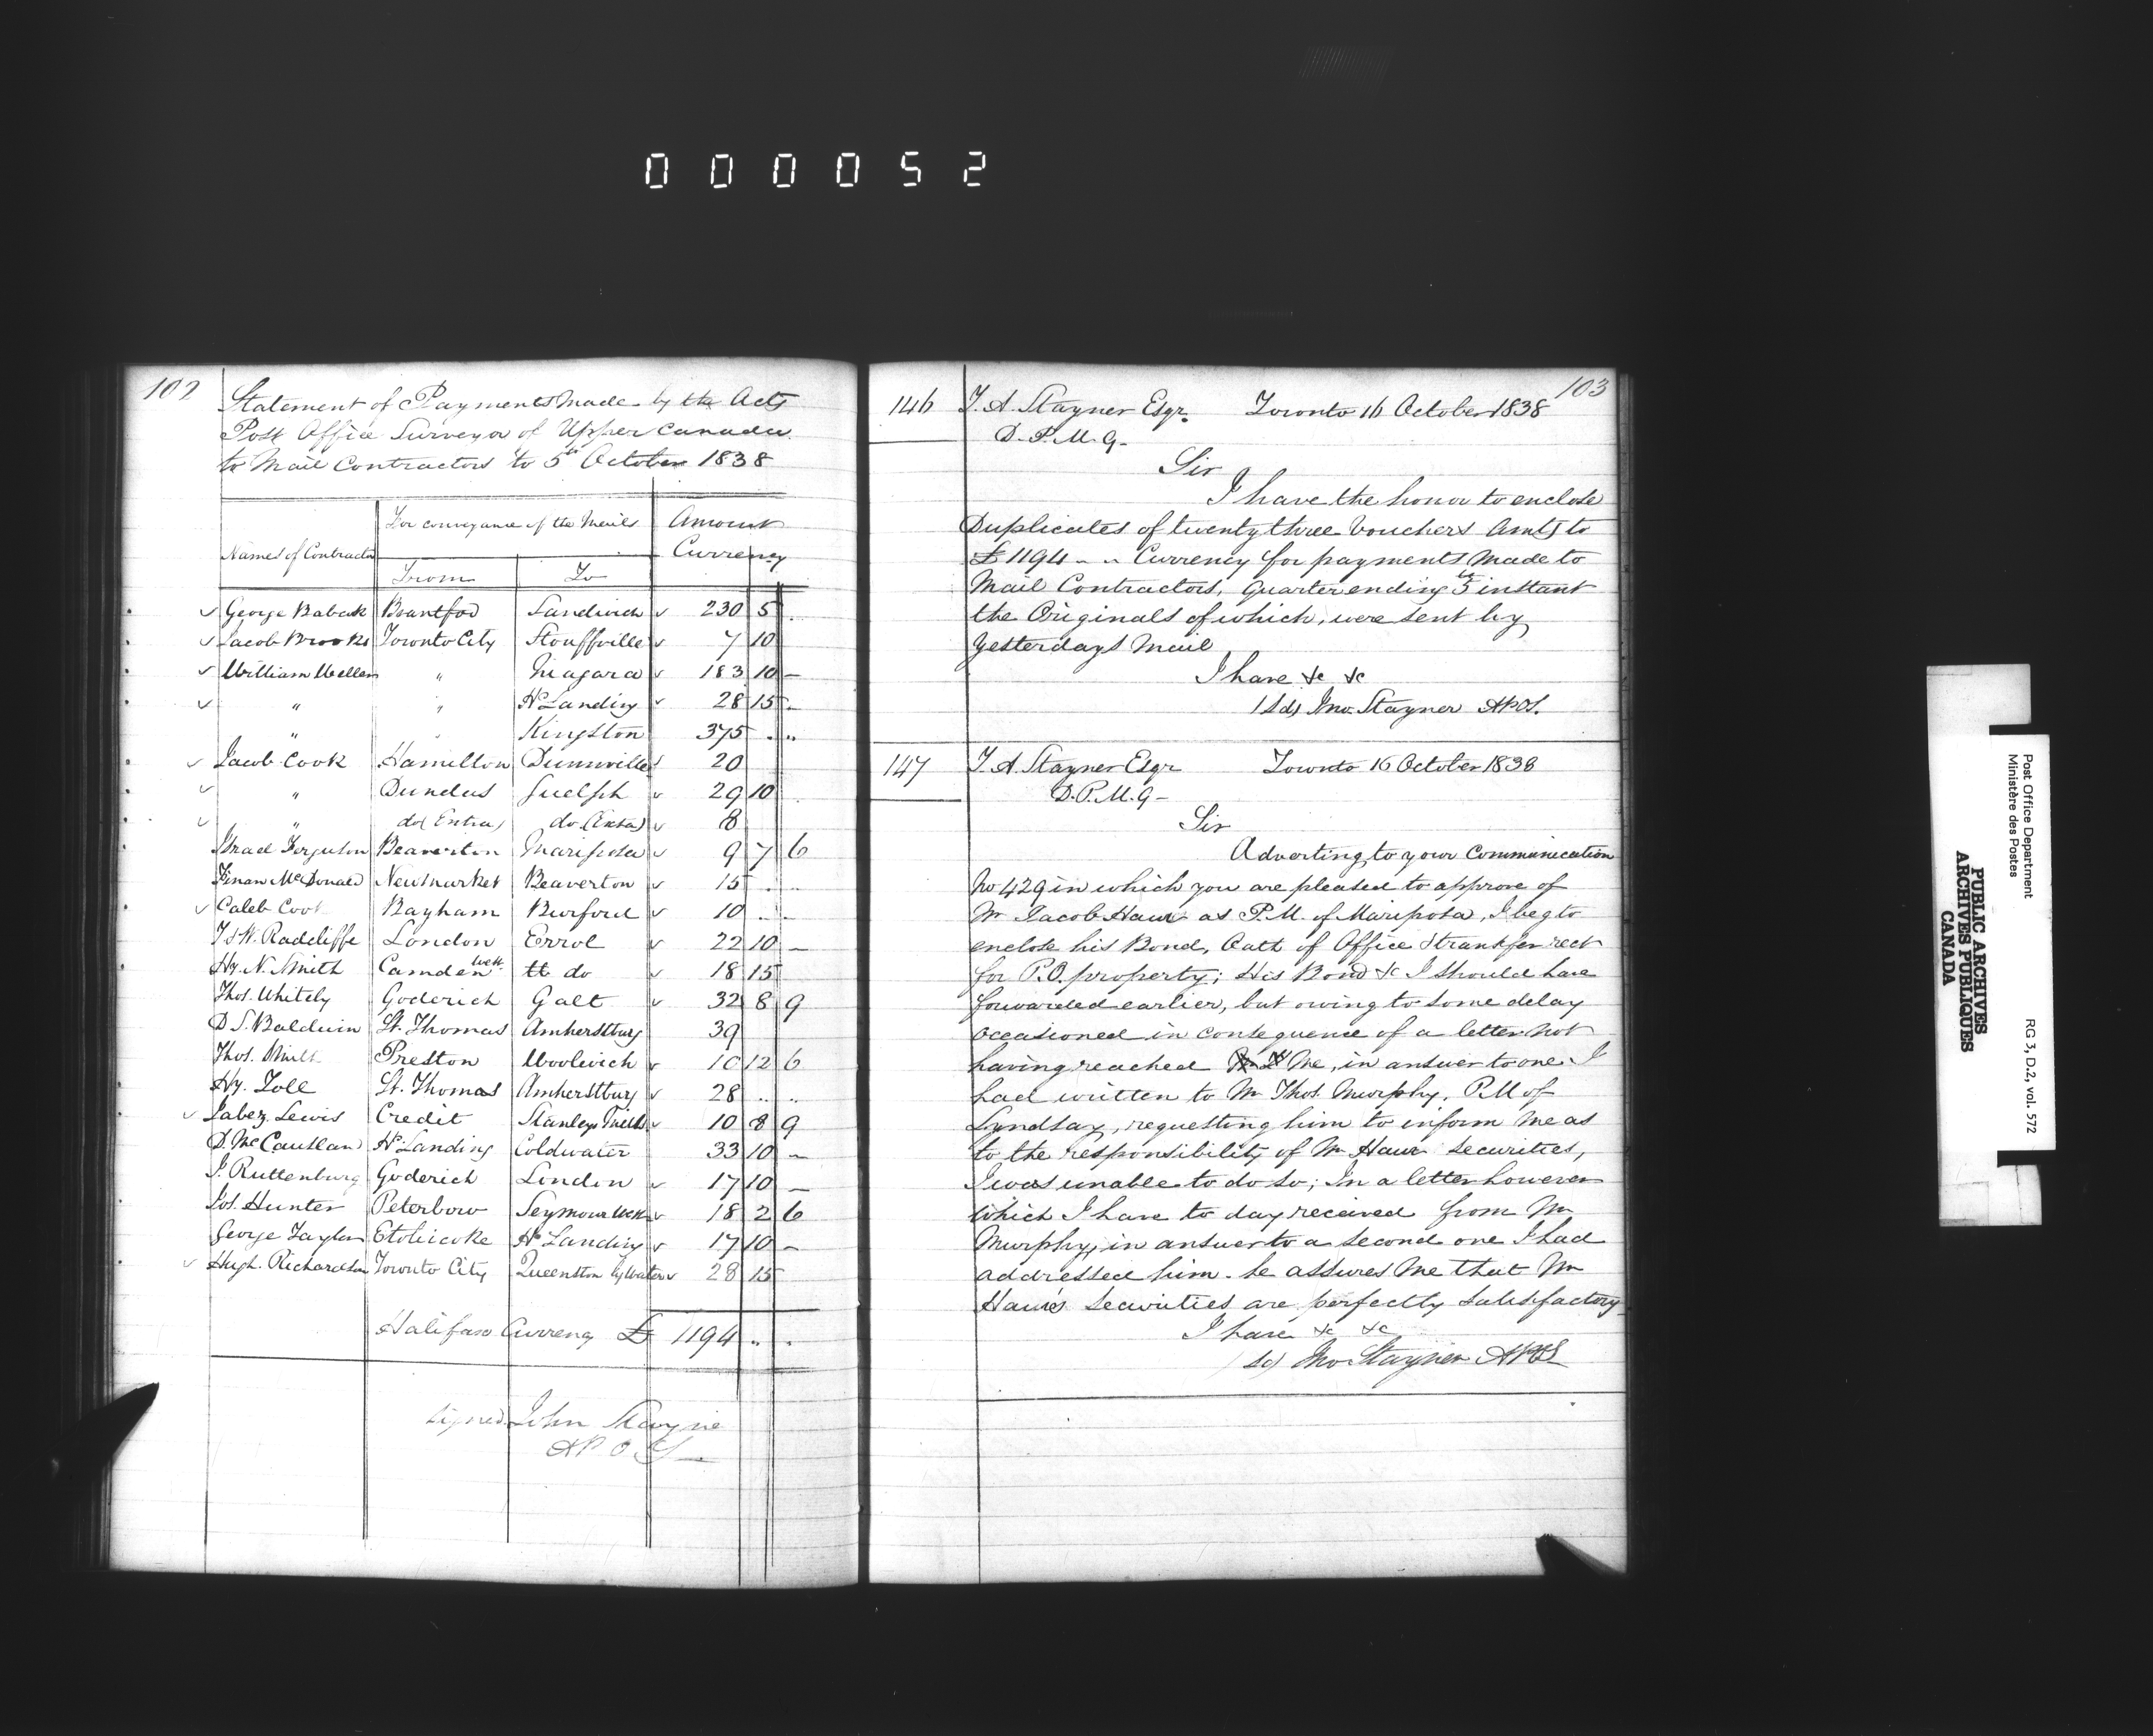 000052
102
Statement of Payments Made by the Actg
Post Office Surveyor of Upper Canada
to Mail Contractors to 5th October 1838
Names of Contractor For conveyance of the Mails Amount Currency
From To
George Babcock Brantford Sandwich 230 5
Jacob Brooks Toronto City Stouffville 7 10
William Weller " Niagara 183 10 -
" " Hd Landing 28 15 -
" " Kingston 375 .. ..
Jacob Cook Hamilton Dunnville 20
" Dundas Guelph 29 10
" do (Extra) do (Extra) 8
Israel Ferguson Beaverton Mariposa 9 7 6
Finan McDonald Newmarket Beaverton 15 .. ..
Caleb Cook Bayham Burford 10 .. ..
T & W. Radcliffe London Errol 22 10 -
Hy. N. Smith Camden West to do 18 15
Thos. Whitely Goderich Galt 32 8 9
D S. Baldwin St. Thomas Amherstburg 39
Thos. Smith Preston Woolwich 10 12 6
Hy. Zoll St. Thomas Amherstburg 28 .. ..
Jabez Lewis Credit Stanleys Mills 10 8 9
D. McCauslan Hd Landing Coldwater 33 10 -
J. Ruttenburg Goderich London 17 10 -
Jos. Hunter Peterboro Seymour West 18 2 6
George Taylor Etobicoke Hd Landing 17 10 -
Hugh Richardson Toronto City Queenston by Water 28 15
Halifax Currency £ 1194 .. ..
signed John Stayne
A P. O S
103
146 T. A. Stayner Esqr. Toronto 16 October 1838
D. P. M. G-
Sir
I have the honor to enclose
Duplicates of twenty three Vouchers Amtg to
£1194 - - Currency for payments Made to
Mail Contractors, Quarter ending 5th instant
the Originals of which, were sent by
yesterdays Mail
I have &c &c
(Sd) Jno. Stayner APOS.
147 T. A. Stayner Esqr Toronto 16 October 1838
D. P. M. G-
Sir
Adverting to your Communication
No 429 in which you are pleased to approve of
Mr Jacob Haun as P.M. of Mariposa, I beg to
enclose his Bond, Oath of Office & transfer rect
for P.O. property; His Bond &c I should have
forwarded earlier, but owing to some delay
occasioned in consequence of a letter not
having reached Me, in answer to one I
had written to Mr Thos Murphy, P.M of
Lyndsay, requesting him to inform Me as
to the responsibility of Mr Haun securities,
I was unable to do so; In a letter however
Which I have to day received from Mr
Murphy, in answer to a second one I had
addressed him. he assures Me that Mr
Haun's securities are perfectly satisfactory
I have &c &c
(Sd) Jno Stayner APOS
Post Office Department
Ministère des Postes
RG 3, D.2, vol. 572
PUBLIC ARCHIVES
ARCHIVES PUBLIQUES
CANADA